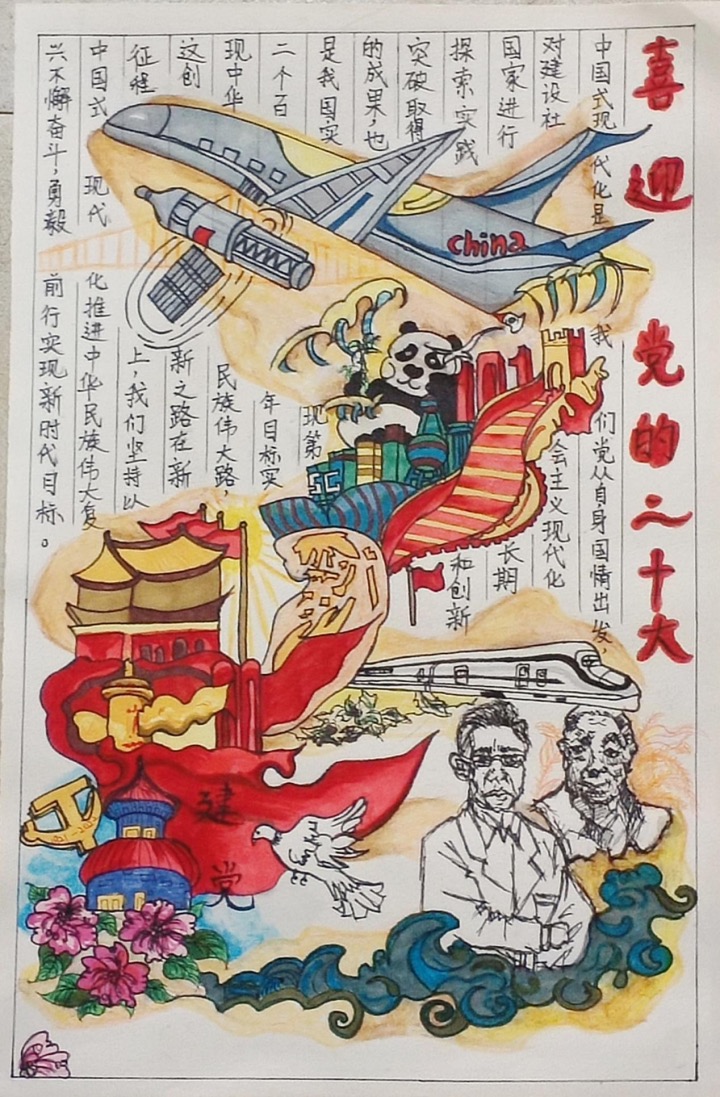 喜迎党的二十大
中国式现代化是我们党从自身国情出发，
对建设社会主义现代化
国家进行长期
探索实践和创新
突破取得
的成果，也
是我国实现第
二个百年目标实
现中华民族伟大路，
这创新之路在新
征程上，我们坚持以
中国式现代化推进中华民族伟大复
兴不懈奋斗，勇毅前行实现新时代目标。
china
SC
建党